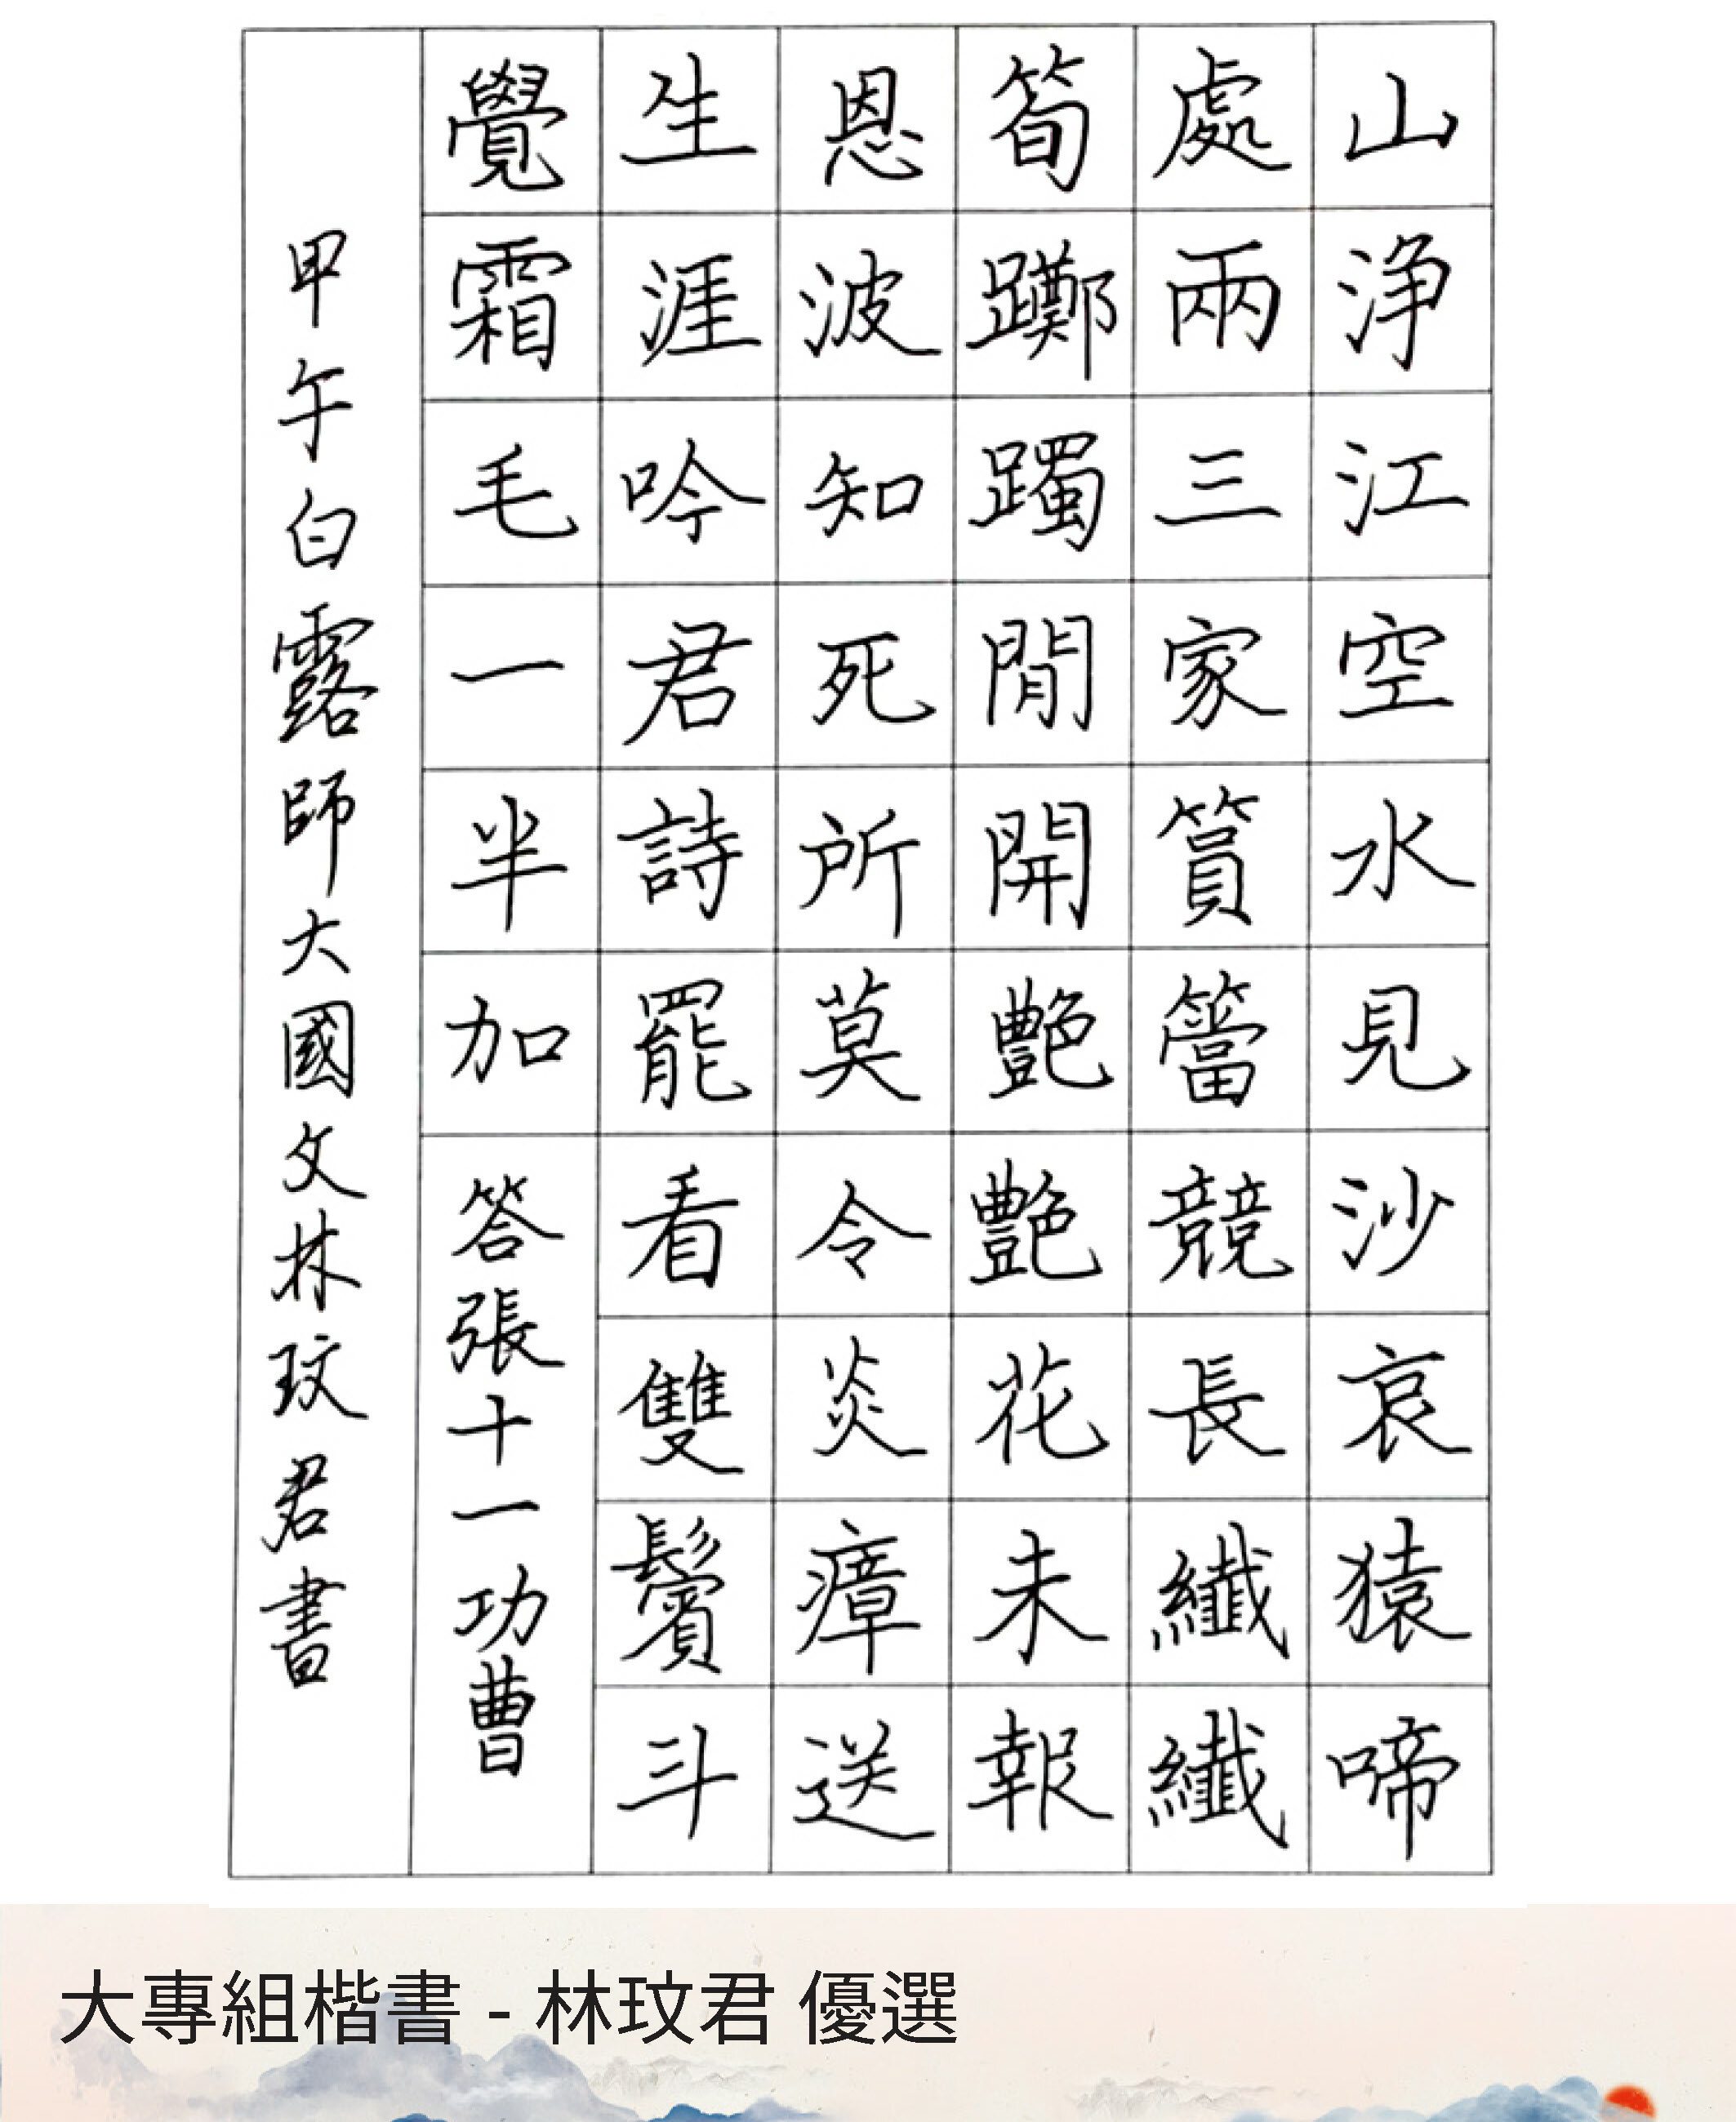 山浄江空水見沙哀猿啼
處兩三家篔簹競長纖纖
筍躑躅閒開艷艷花未報
恩波知死所莫令炎瘴送
生涯吟君詩罷看雙鬢斗
覺霜毛一半加答張十一功曹
甲午白露師大國文林玟君書
大專組楷書 - 林玟君 優選